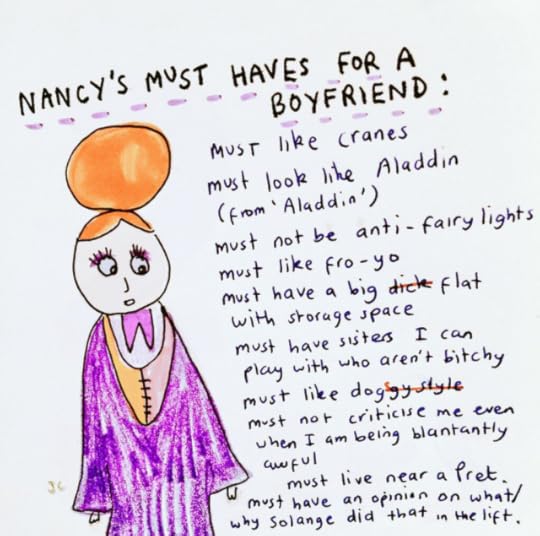 NANCY'S MUST HAVES FOR A
BOYFRIEND:
MUST like cranes
must look like Aladdin
(from 'Aladdin')
must not be anti-fairy lights
must like fro-yo
must have a big dick flat
with storage space
must have sisters I can
play with who aren't bitchy
must like doggy style
must not criticise me even
when I am being blantantly
awful
must live near a Pret.
must have an opinion on what/
why Solange did that in the lift.